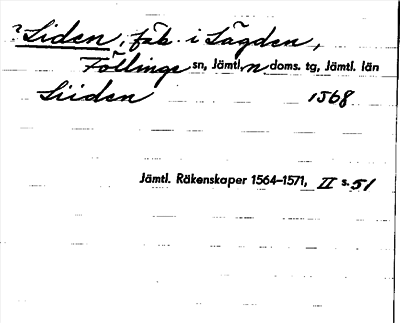 ? Siden, fäb. i Lägden,
Föllinge sn, Jämtl. n doms. tg, Jämtl. län
Siiden 1568
Jämtl. Räkenskaper 1564–1571, II s. 51